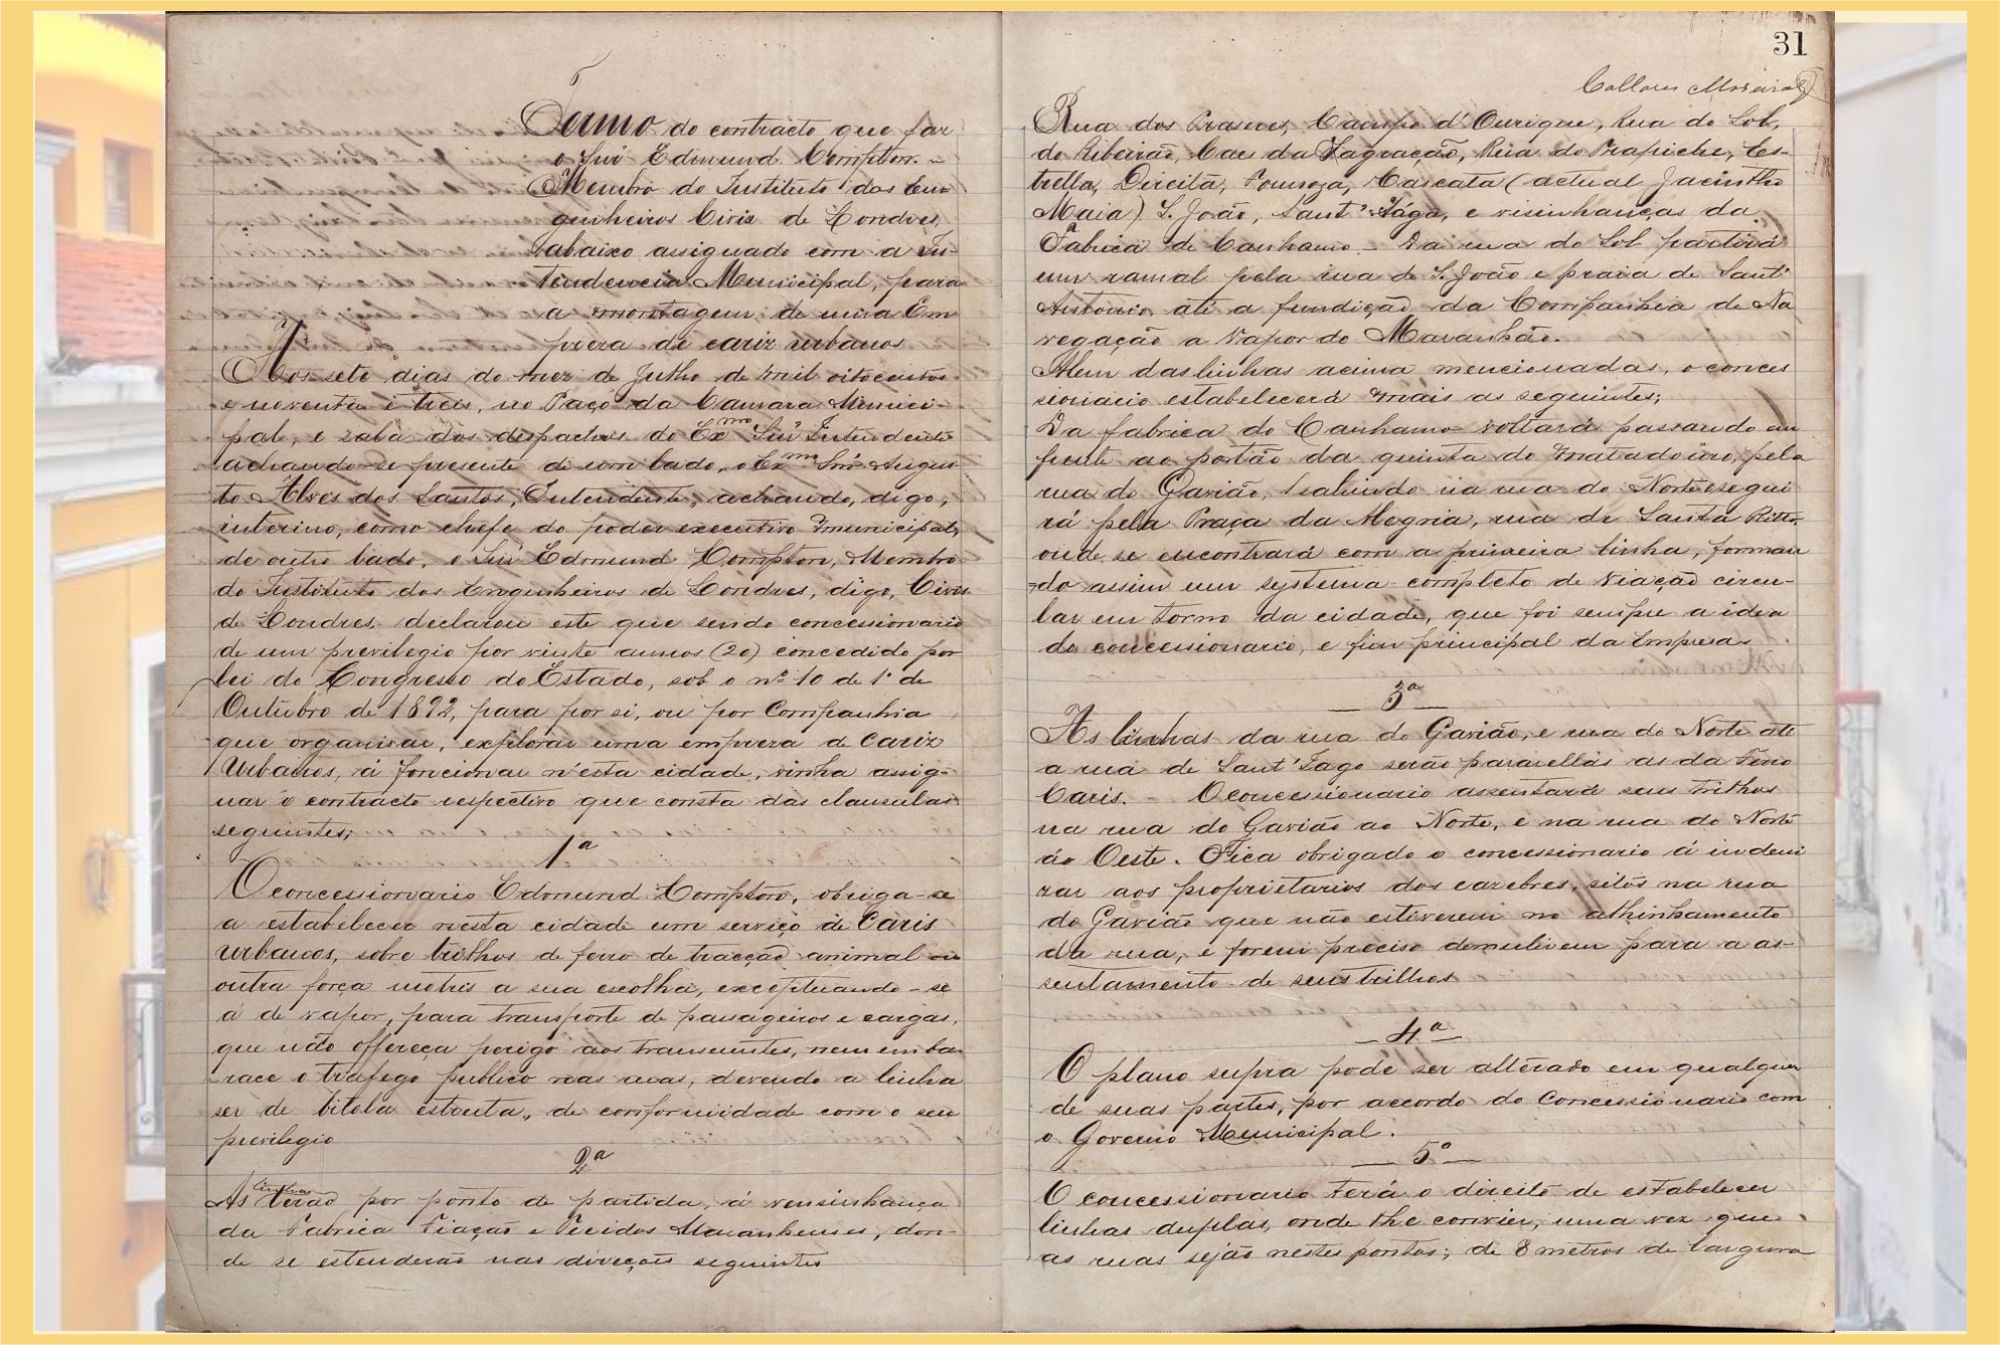 Termo do contracto que faz
o Snr Edmund Compton
Membro do Instituto dos En
genheiros Civis de Londres,
abaixo assignado com a In-
tendencia Municipal, para
a montagem de uma Em
preza de cariz urbanos
Aos sete dias do mez de Julho de mil oitocentos
e noventa e trez, no Paço da Camara Munici-
pal, e sala dos despachos do Exmo Snr Intendente
achando-se presente de um lado, o Exmo Snr Augus
to Alves dos Santos, Intendente, achando, digo,
interino, como chefe do poder executivo municipal,
de outro lado, o Snr Edmund Compton, Membro
do Instituto dos Engenheiros de Londres, digo, Civis
de Londres, declarou este que sendo concessionario
de um previlegio por vinte annos (20) concedido por
lei do Congresso do Estado, sob o nº 10 de 1º de
Outubro de 1892, para por si, ou por Companhia
que organisar, explorar uma empreza de Cariz
Urbanos, á foncionar n'esta cidade, vinha assig-
nar o contracto respectivo que consta das clausulas
seguintes;
1ª
O concessionario Edmund Compton, obriga-se
a estabelecer nesta cidade um serviço de Caris
urbanos, sobre trilhos de ferro de tracção animal ou
outra força motris a sua escolha, exceptuando-se
á de vapor, para transporte de passageiros e cargas,
que não offereça perigo aos transeuntes, nem emba-
race o trafego publico nas ruas, devendo a linha
ser de bitola estreita, de conformidade com o seu
previlegio
2ª
As linhas terão por ponto de partida, á vensinhança
da Fabrica Fiação e Tecidos Maranhenses, don-
de se estenderão nas direções seguintes
31
Collares Moreira
Rua dos Prazeres, Campo d'Ourique, Rua do Sol,
do Ribeirão, Caes da Sagração, Rua do Trapiche, Es-
trella, Direita, Cascata (actual Jacintho
Maia) S. João, Sant'Iágo, e visinhanças da
Fabrica de Canhamo – Da rua do Sol partirá
um ramal pela rua de S. João e praia de Sant'
Antonio, até a fundição da Companhia de Na
vegação a Vapor do Maranhão.
Alem das linhas acima mencionadas, o conces
sionario estabelecerá mais as seguintes;
Da fabrica do Canhamo voltará passando em
frente ao portão da quinta do matadoiro, pela
rua do Gavião, sahindo na rua do Norte e segui
rá pela Praça da Alegria, rua de Santa Ritta,
onde se encontrará com a primeira linha, forman
do assim um systema completo de viação circu-
lar em torno da cidade, que foi sempre a idea
do concissionario, e fim principal da Empresa
3ª
As linhas da rua do Gavião, e rua do Norte até
a rua de Sant'Iago serão pararellas as da Ferro
Caris. – O concessionario assentará seus trilhos
na rua do Gavião ao Norte, e na rua do Norte
ao Oeste. Fica obrigado o concessionario á indeni
zar aos proprietarios dos cazebres, sitos na rua
do Gavião que não estiverem no alhinhamento
da rua, e forem preciso demulirem para o as-
sentamento de seus trilhos
4ª
O plano supra pode ser alterado em qualquer
de suas partes, por accordo do Concessionario com
o Governo Municipal.
5ª
O concessionario terá o direito de estabelecer
linhas duplas, onde lhe convier, uma vez que
as ruas sejão nestes pontos; de 8 metros de largura